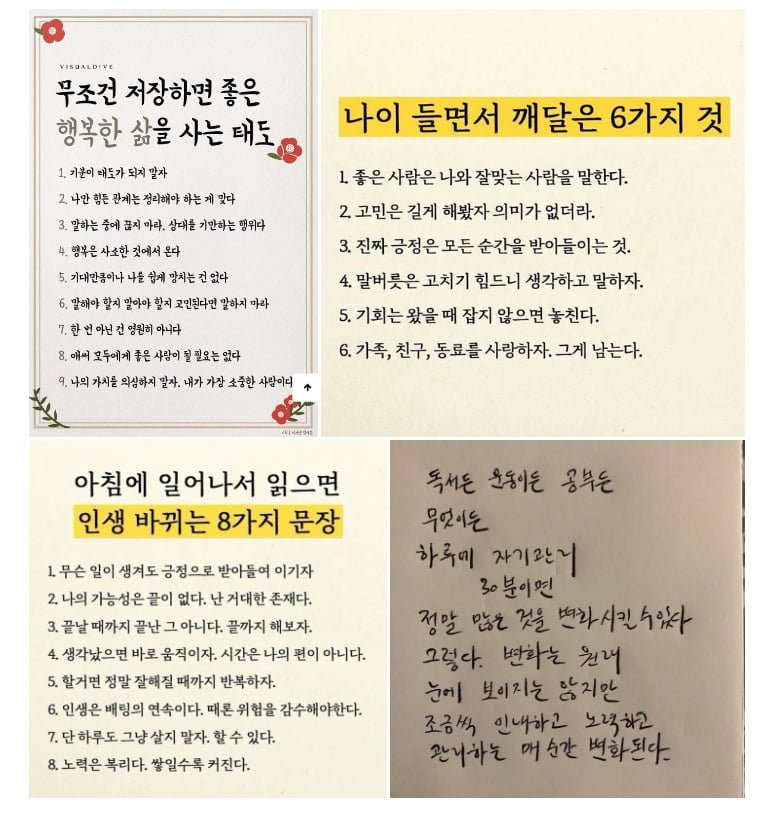 VISUALDIVE
무조건 저장하면 좋은
행복한 삶을 사는 태도
1. 기분이 태도가 되지 말자
2. 나만 힘든 관계는 정리해야 하는 게 맞다
3. 말하는 중에 끊지 마라. 상대를 기만하는 행위다
4. 행복은 사소한 것에서 온다
5. 기대만큼이나 나를 쉽게 망치는 건 없다
6. 말해야 할지 말아야 할지 고민된다면 말하지 마라
7. 한 번 아닌 건 영원히 아니다
8. 애써 모두에게 좋은 사람이 될 필요는 없다
9. 나의 가치를 의심하지 말자. 내가 가장 소중한 사람이다
나이 들면서 깨달은 6가지 것
1. 좋은 사람은 나와 잘맞는 사람을 말한다.
2. 고민은 길게 해봤자 의미가 없더라.
3. 진짜 긍정은 모든 순간을 받아들이는 것.
4. 말버릇은 고치기 힘드니 생각하고 말하자.
5. 기회는 왔을 때 잡지 않으면 놓친다.
6. 가족, 친구, 동료를 사랑하자. 그게 남는다.
아침에 일어나서 읽으면
인생 바뀌는 8가지 문장
1. 무슨 일이 생겨도 긍정으로 받아들여 이기자
2. 나의 가능성은 끝이 없다. 난 거대한 존재다.
3. 끝날 때까지 끝난 그 아니다. 끝까지 해보자.
4. 생각났으면 바로 움직이자. 시간은 나의 편이 아니다.
5. 할거면 정말 잘해질 때까지 반복하자.
6. 인생은 배팅의 연속이다. 때론 위험을 감수해야한다.
7. 단 하루도 그냥 살지 말자. 할 수 있다.
8. 노력은 복리다. 쌓일수록 커진다.
독서든 운동이든 공부든
무엇이든
하루에 자기관리
30분이면
정말 많은 것을 변화시킬 수 있다
그렇다. 변화는 원래
눈에 보이지는 않지만
조금씩 인내하고 노력하고
관리하는 매 순간 변화된다.